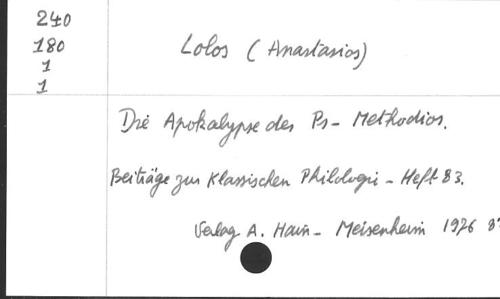 240
180
1
1
Lolos (Anastasios)
Die Apokalypse des Ps- Methodios.
Beiträge zur Klassischen Philologie - Heft 83.
Verlag A. Hain - Meisenheim 1976 8°